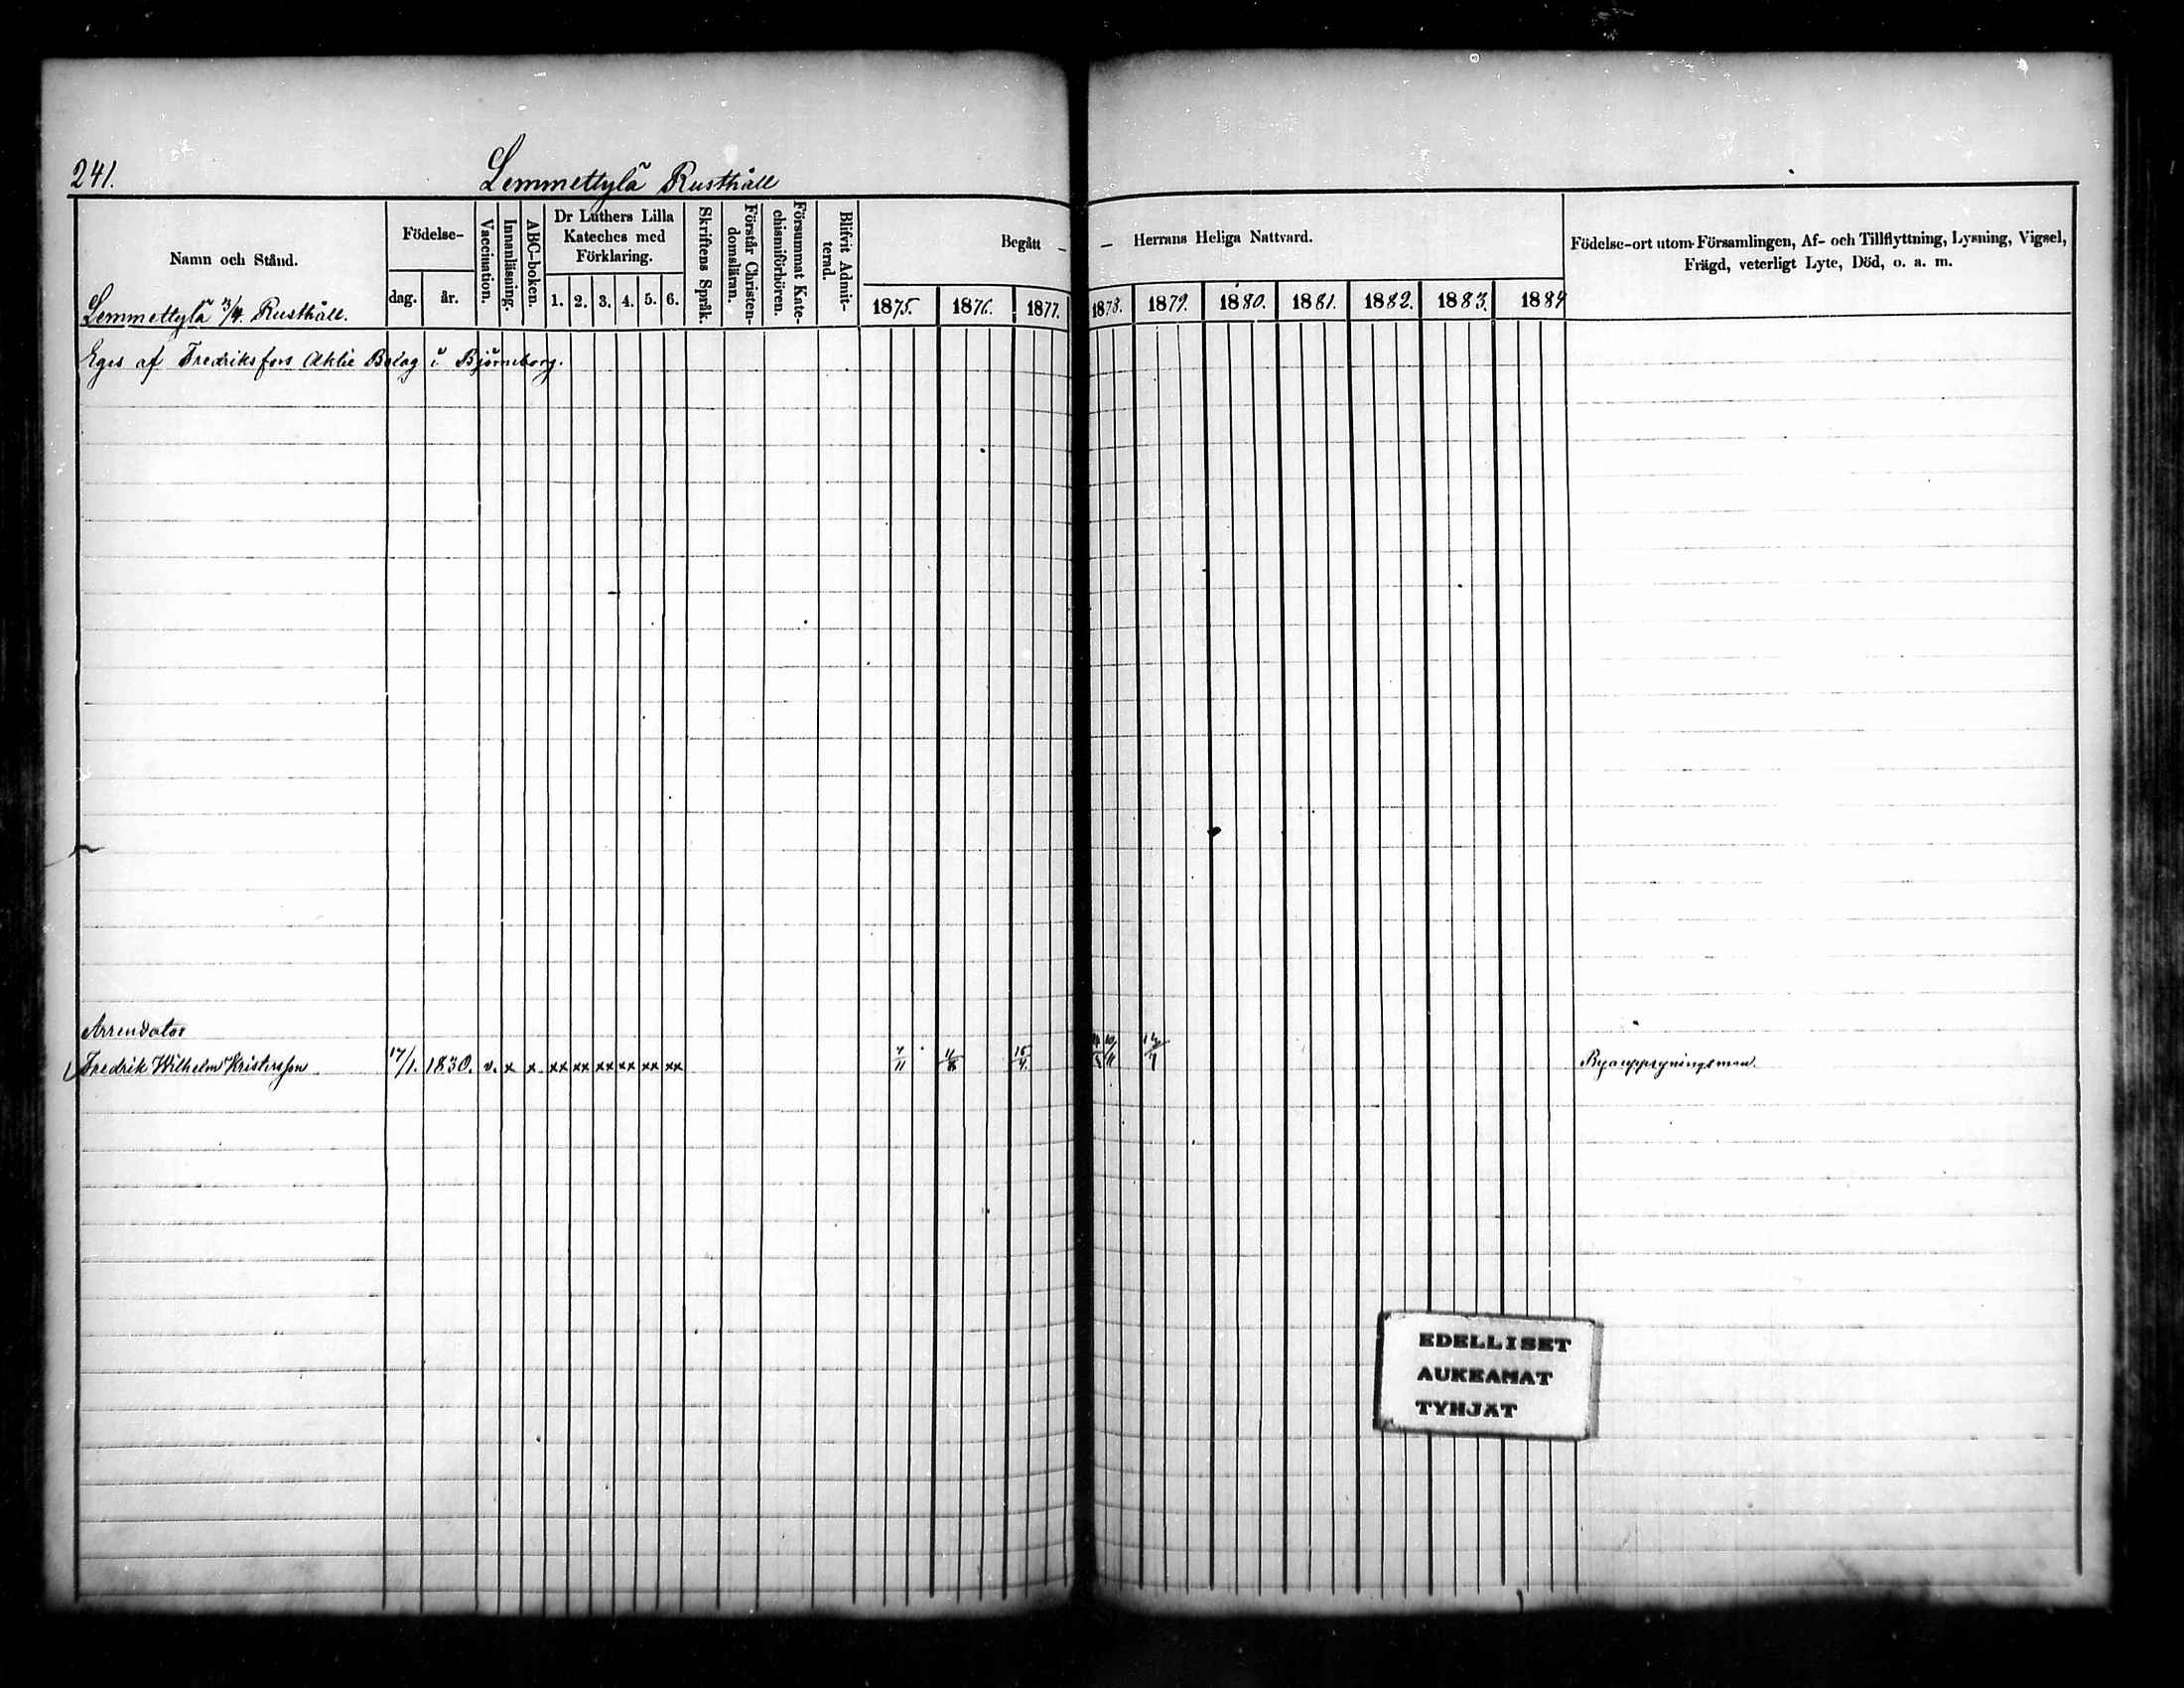 241. Lemmettylä Rusthåll
Namn och Stånd.
Födelse-
dag.
år.
Vaccination.
Innanläsning.
ABC-boken.
Dr Luthers Lilla
Kateches med
Förklaring.
1. 2. 3. 4. 5. 6.
Skriftens Språk.
Förstår Christen-
domsläran.
Försummat Kate-
chismiförhören.
Blifvit Admit-
terad.
Begått - - Herrans Heliga Nattvard.
1875. 1876. 1877. 1878. 1879. 1880. 1881. 1882. 1883. 1884
Födelse-ort utom Församlingen, Af- och Tillflyttning, Lysning, Vigsel,
Frägd, veterligt Lyte, Död, o. a. m.
Lemmettylä 3/4. Rusthåll.
Eges af Fredriksfors Aktie Bolag i Björneborg.
Arrendator
Fredrik Wilhelm Kristersson 17/1. 1830. v. x x. xx xx xx xx xx xx 7/11 11/8 15/4. Byauppsyningsman.
EDELLISET
AUKEAMAT
TYHJÄT